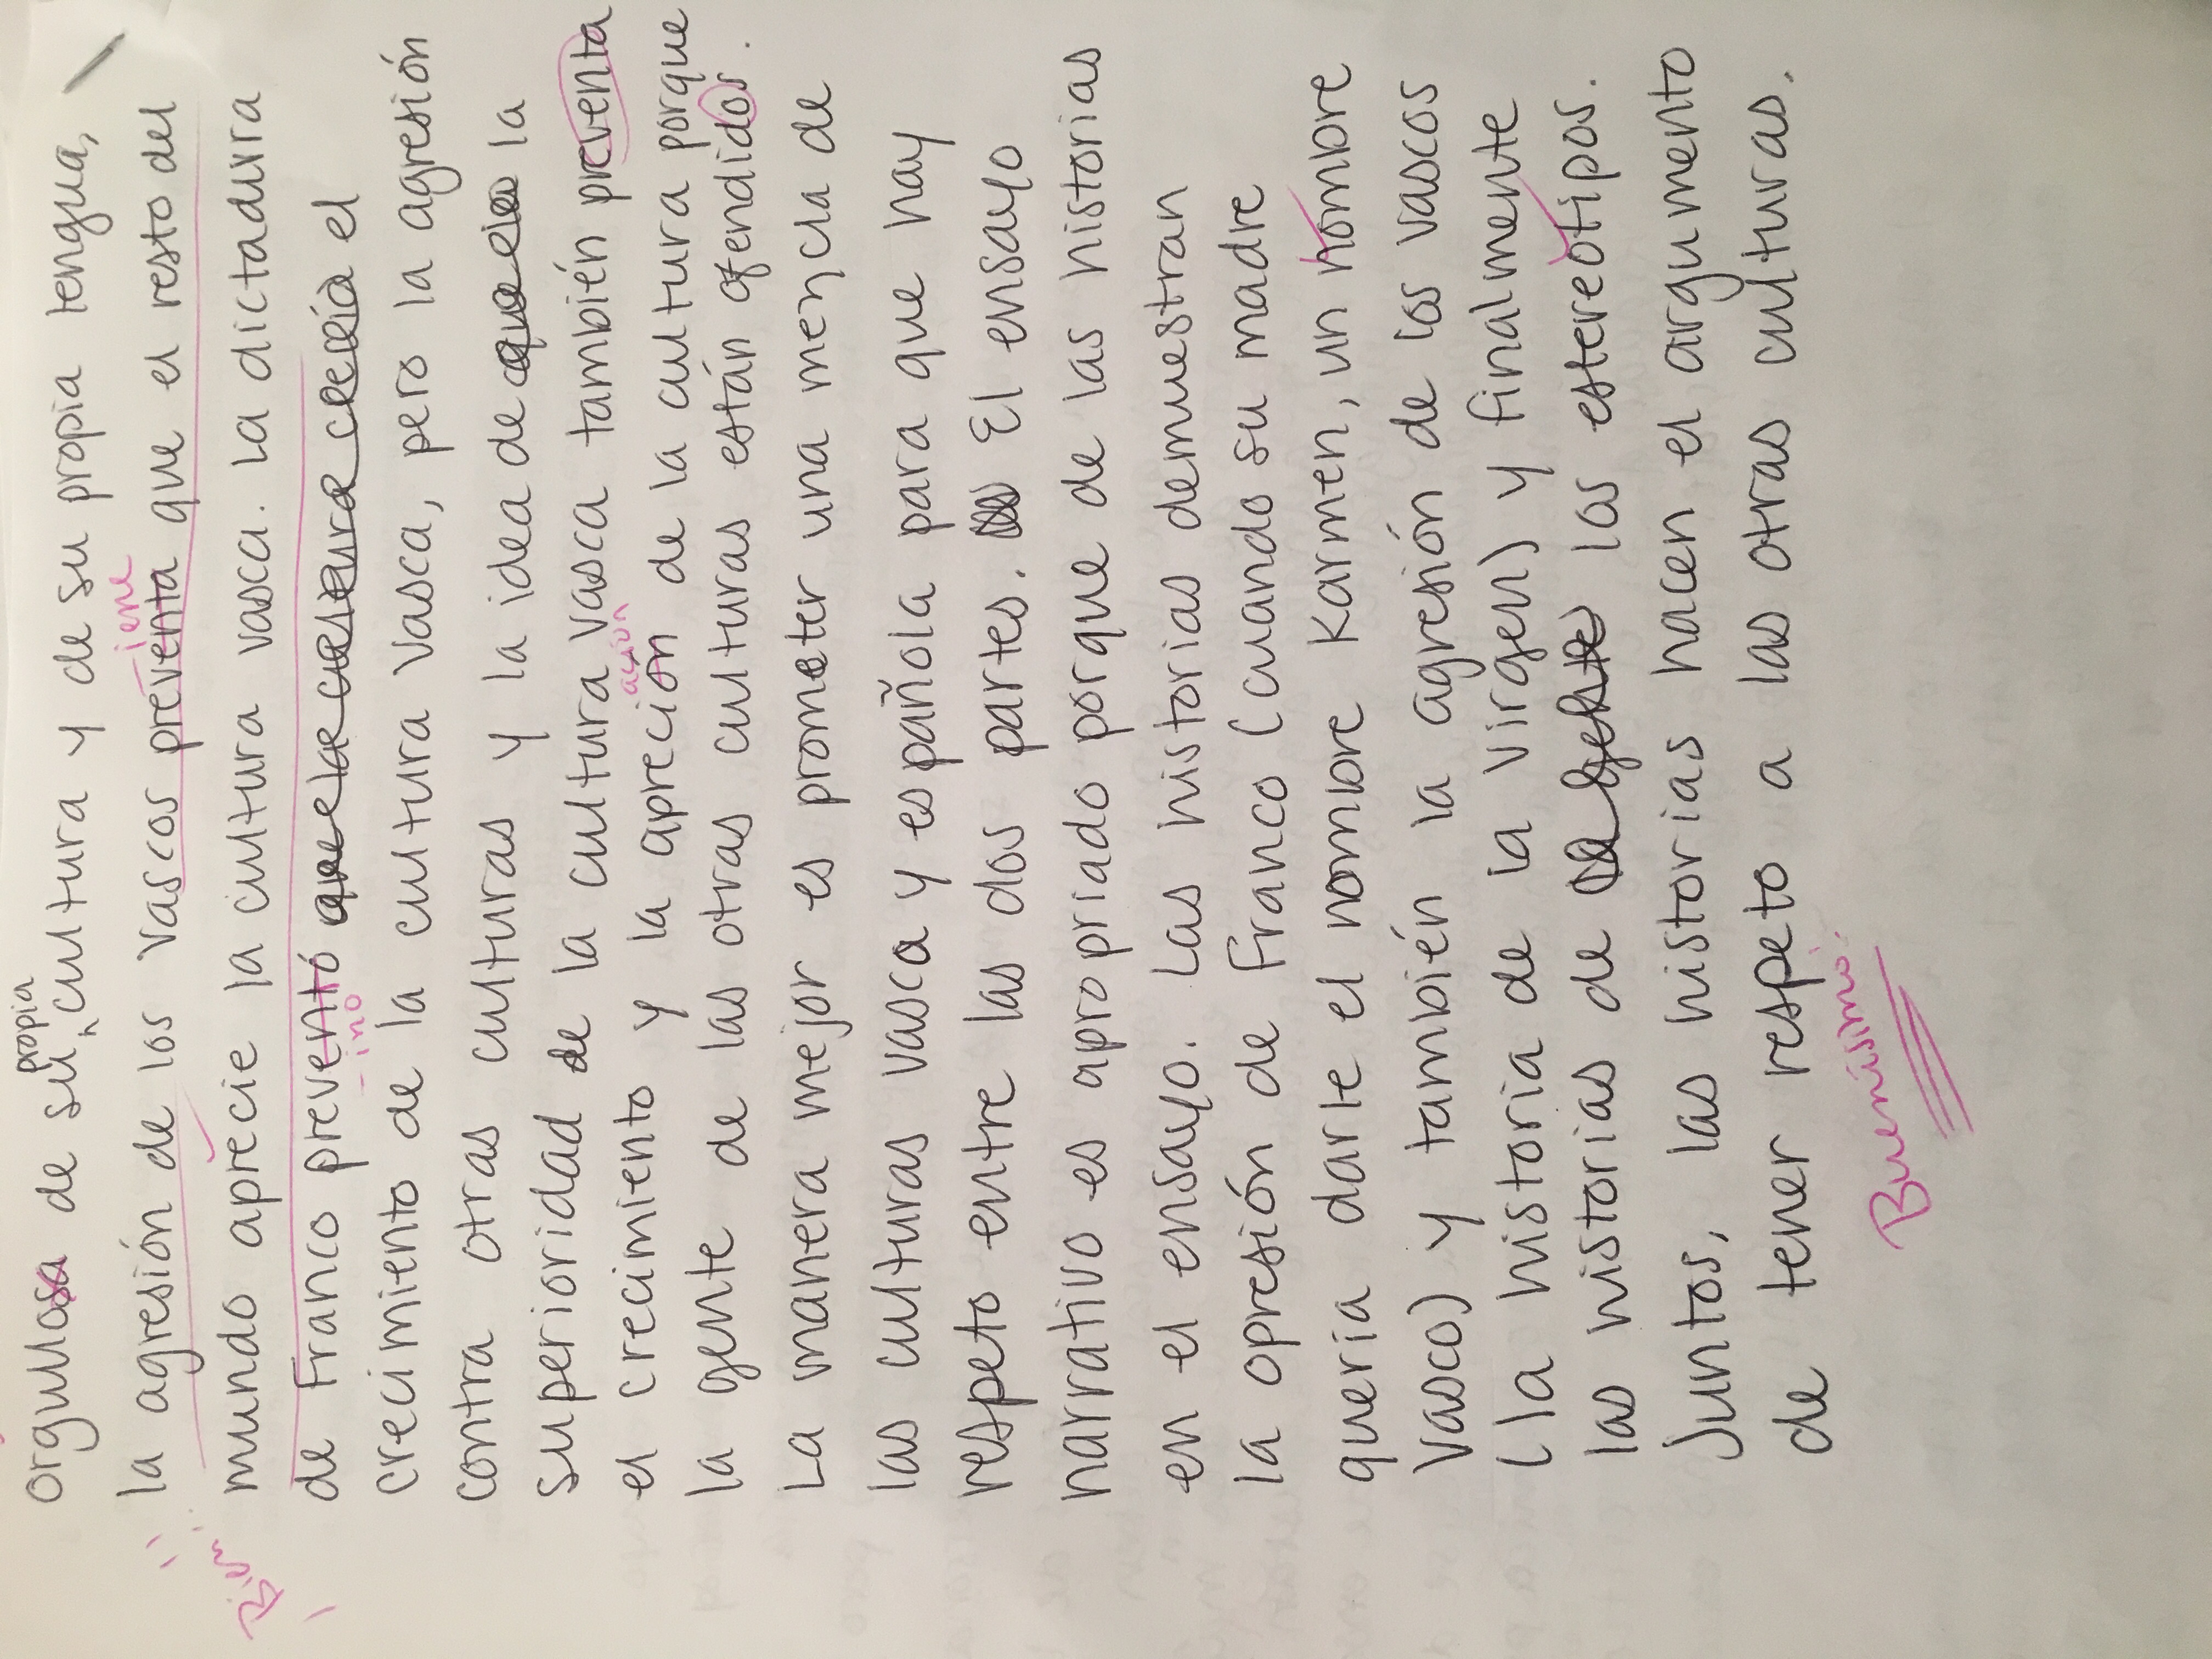 propia
orgullosa de su cultura y de su propia lengua,
-iene
la agresión de los vascos preventa que el resto del
¡Bien!!
mundo aprecie la cultura vasca. La dictadura
de Franco preventó que la cultura crecía el
-ino
crecimiento de la cultura vasca, pero la agresión
contra otras culturas y la idea de que la la
superioridad de la cultura vasca también preventa
ación
el crecimiento y la apreción de la cultura porque
la gente de las otras culturas están ofendidos.
La manera mejor es prometer una mezcla de
las culturas vasca y española para que hay
respeto entre las dos partes. El ensayo
narrativo es apropriado porque de las historias
en el ensayo. Las historias demuestran
la opresión de Franco (cuando su madre
quería darle el nombre Karmen, un nombre
vasco) y también la agresión de los vascos
(la historia de la Virgen) y finalmente
las historias de la gente los estereotipos.
Juntos, las historias hacen el argumento
de tener respeto a las otras culturas.
Buenísimo!